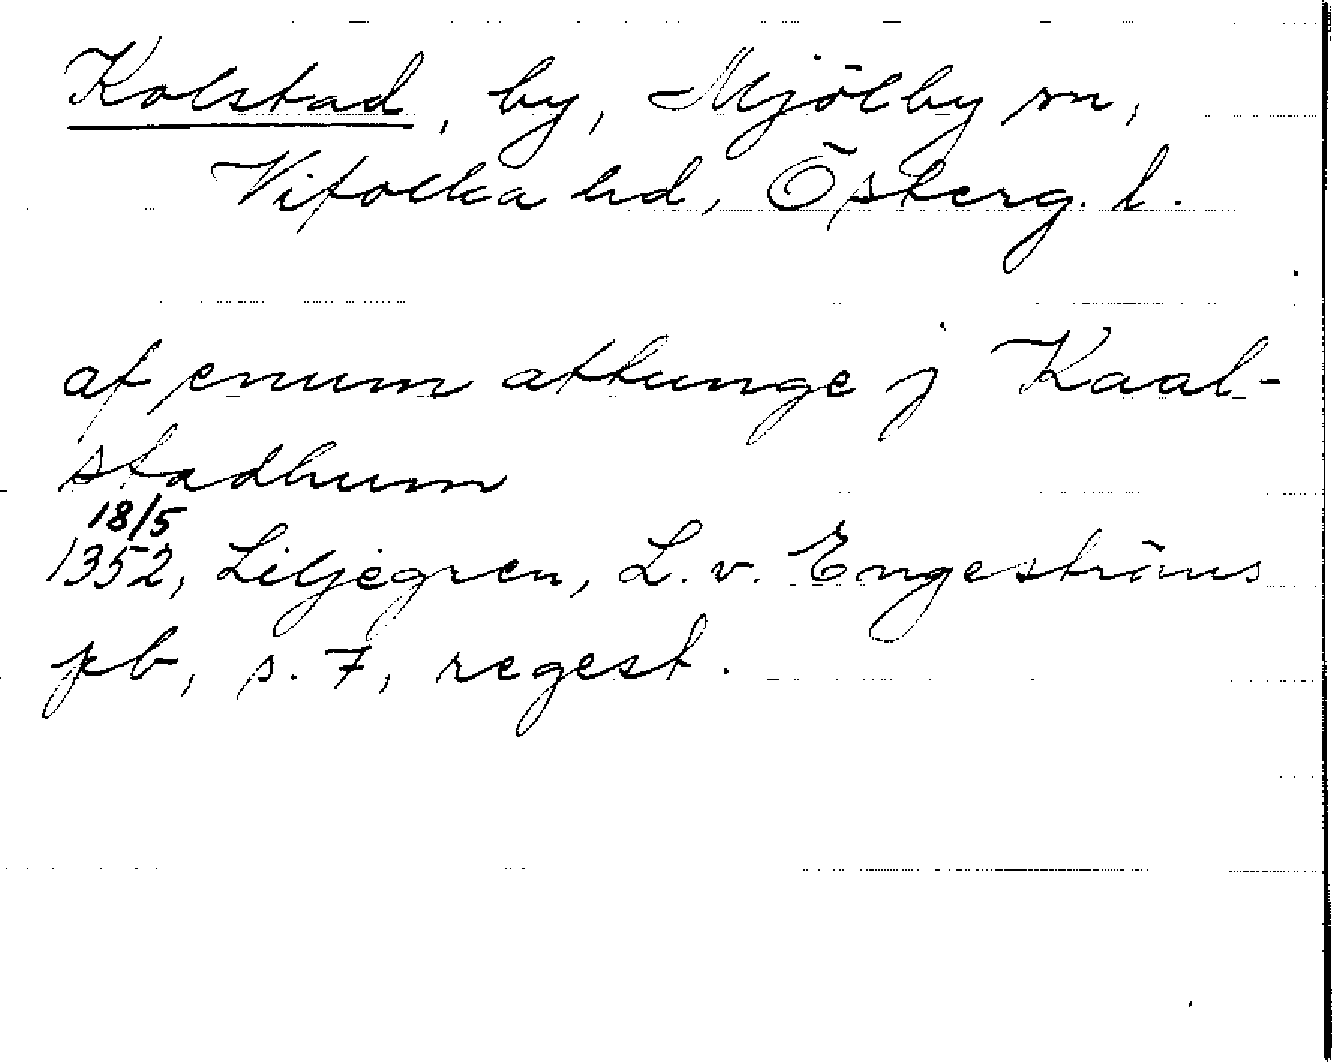 Kolstad, by, Mjölby sn,
Vifolka hd, Österg. l.
af enum attunge j Kaal-
stadhum
18/5
1352, Liljegren, L. v. Engeströms
pb, s. 7, regest.